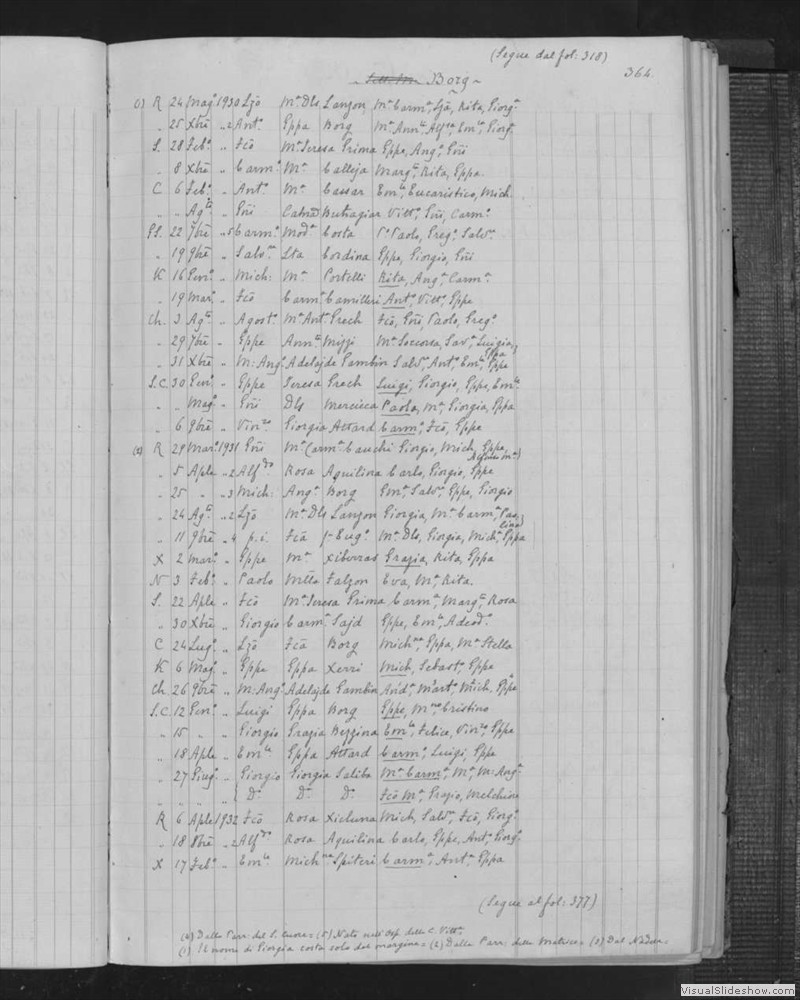 (Segue dal fol: 318)
364.
Borg
(1) R 24 Magº 1930 Ljō Mª Dls Lanzon Mª Carmª, Ljā, Rita, Giorgª
" 25 Xbre " 2 Antº Gppa Borg Mª Annta, Alfª, Emla, Giorgª
S. 28 Febº " Fcō Mª Teresa Prima Gppe, Angª, Gōñi
" 8 Xbre " Carmº Mª Calleja Margta, Rita, Gppa.
C 6 Febº " Antº Mª Cassar Emla, Eucaristico, Mich.
" " Agto " Gōñi Catna Buttagiar Vittª, Gōñi, Carmª
PS. 22 7bre " 5 Carmº Modª Costa Pª Paolo, Gregº Salvre
" 19 9bre " Salvre Lta Cordina Gppe, Giorgio, Gōñi
K 16 Genº " Mich: Mª Portelli Rita, Angª, Carmª
" 19 Marº " Fcō Carmª Camilleri Antª Vittª, Gppe
Ch. 3 Agto " Agostº Mª Antª Grech Fcō, Gōñi, Paolo, Gregº
" 29 7bre " Gppe Annta Mizzi Mª Soccorsa, Savª, Luigia, Gppa
" 31 Xbre " M: Angº Adelajde Gambin Salvre, Antº, Emle, Gppe
S.C. 30 Genº " Gppe Teresa Grech Luigi, Giorgio, Gppe, Emle
" " Magº " Gōñi Dls Mercieca Paola, Mª, Giorgia, Gppa
" 6 9bre " Vinzo Giorgia Attard Carmº, Fcō, Gppe
(2) R 29 Marº 1931 Gōñi Mª Carmª Cauchi Giorgio, Mich, Gppe,
" 5 Aple " 2 Alfdo Rosa Aquilina Carlo, Giorgio, Gppe
" 25 " " 3 Mich: Angª Borg Emla, Salvre, Gppe, Giorgio
" 24 Agto " 2 Ljō Mª Dls Lanzon Giorgia, Mª Carmª, Paolina
" 11 9bre " 4 p.i. Fcā f-Eugº Mª Dls, Giorgia, Michª, Gppa
X 2 Marº " Gppe Mª Xiberras Grazia, Rita, Gppa
N 3 Febº " Paolo Mtta Falzon Eva, Mª, Rita.
S. 22 Aple " Fcō Mª Teresa Prima Carmª, Margta, Rosa
" 30 Xbre " Giorgio Carmª Sajd Gppe, Emle, Adeodº
C 24 Lugº " Ljō Fcā Borg Michna, Gppa, Mª Stella
K 6 Magº " Gppe Gppa Xerri Mich, Sebastº, Gppe
Ch. 26 9bre " M: Angº Adelajde Gambin Andª, Martª, Mich, Gppe
S.C. 12 Genº " Luigi Gppa Borg Gppe, Mª, Cristino
" 15 " " Giorgio Grazia Bezzina Emle, Felice, Vinzo, Gppe
" 18 Aple " Emle Gppa Attard Carmº, Luigi, Gppe
" 27 Giugº " Giorgio Giorgia Saliba Mª Carmª, Mª, M: Angª
" " " " { Dº Dª Dª Fcō Mª, Grazio, Melchiore
R 6 Aple 1932 Fcō Rosa Xicluna Mich, Salvre, Fcō, Giorgº
" 18 8bre " 2 Alfdo Rosa Aquilina Carlo, Gppe, Antº, Giorgº
X 17 Febº " Emle Michna Spiteri Carmª, Antª, Gppa
(Segue al fol: 377)
(4) Dalla Parr: del S. Cuore = (5) Nato nell'Osp. della C. Vittª
(1) Il nome di Giorgia costa solo dal margine = (2) Dalla Parr: della Matrice = (3) Dal Nadur =
VisualSlideshow.com